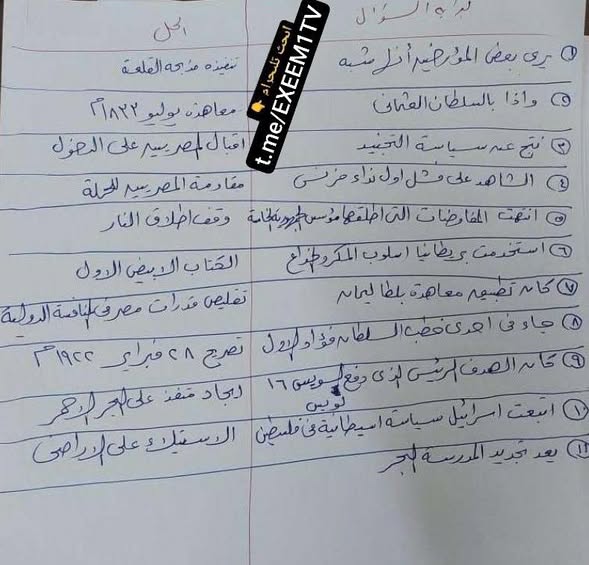 بداية السؤال	الحل
ابحث تليجرام 👇
t.me/EXEEM1TV
① يرى بعض المؤرخين أنه أشبه	تنفيذه مذبحة القلعة
② واذا بالسلطان العثمانى	معاهدة يوليو ١٨٣٣م
③ نتج عن سياسة التجنيد	اقبال المصريين على الدخول
④ الشاهد على فشل اول نداء فرنسى	مقاومة المصريين للحملة
⑤ انتهت المفاوضات التى اطلقها مؤسس الجمهورية الخامسة	وقف اطلاق النار
⑥ استخدمت بريطانيا اسلوب المكر والخداع	الكتاب الابيض الاول
⑦ كان تطبيق معاهدة بلطا ليمان	تقليص قدرات مصر فى المنافسة الدولية
⑧ جاء فى احدى خطب السلطان فؤاد الاول	تصريح ٢٨ فبراير ١٩٢٢م
⑨ كان الهدف الرئيسى الذى دفع لويس ١٦	ايجاد منفذ على البحر الاحمر
لويس
⑩ اتبعت اسرائيل سياسة استيطانية فى فلسطين	الاستيلاء على الاراضى
⑪ يعد تجديد المدرسة البحر